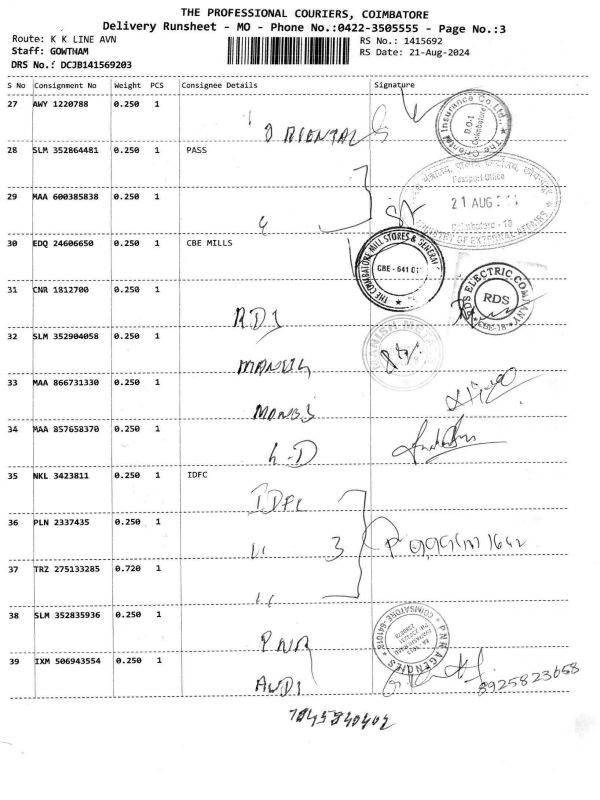 THE PROFESSIONAL COURIERS, COIMBATORE
Delivery Runsheet - MO - Phone No.:0422-3505555 - Page No.:3
Route: K K LINE AVN
RS No.: 1415692
Staff: GOWTHAM
RS Date: 21-Aug-2024
DRS No.: DCJB141569203
S No Consignment No Weight PCS Consignee Details Signature
27 AWY 1220788 0.250 1
ORIENTAL
The Oriental Insurance Co.Ltd., D.O-1 Coimbatore
28 SLM 352864481 0.250 1 PASS
Passport Office
21 AUG
Coimbatore - 18
MINISTRY OF EXTERNAL AFFAIRS
29 MAA 600385838 0.250 1
30 EDQ 24606650 0.250 1 CBE MILLS
THE COIMBATORE MILL STORES & GENERAL
CBE - 641 01
31 CNR 1812700 0.250 1
RDS
RDS ELECTRIC COMPANY
RDS
CBE-18
32 SLM 352904058 0.250 1
33 MAA 866731330 0.250 1
34 MAA 857658370 0.250 1
35 NKL 3423811 0.250 1 IDFC
IDFC
36 PLN 2337435 0.250 1
" 3
37 TRZ 275133285 0.720 1
"
38 SLM 352835936 0.250 1
PNR
PNR AGENCIES
COIMBATORE-641018
39 IXM 506943554 0.250 1
AUDI
8925823658
7845840402